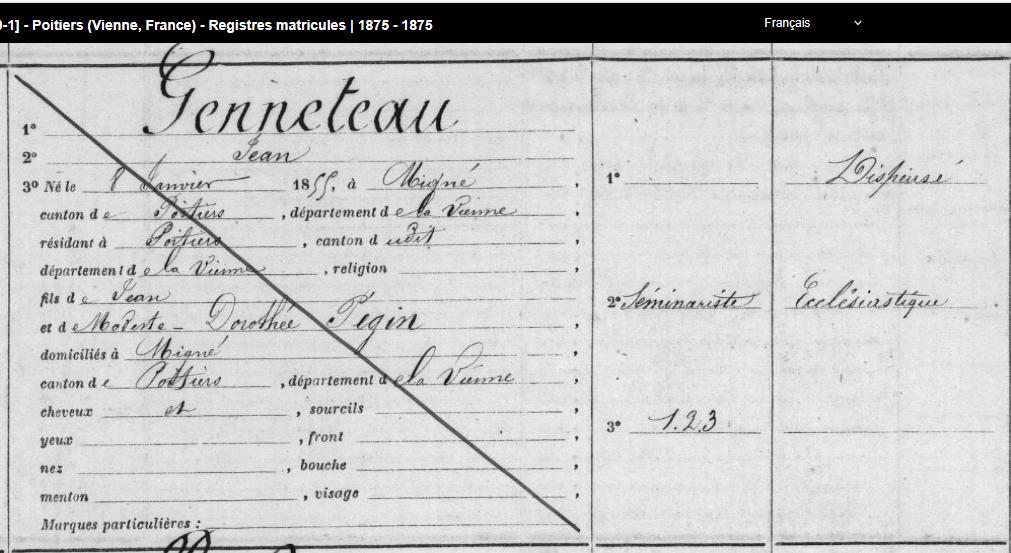 0-1] - Poitiers (Vienne, France) - Registres matricules | 1875 - 1875
Français
1° Genneteau
2° Jean
3° Né le 8 Janvier 1855, à Migné,
canton de Poitiers, département de la Vienne,
résidant à Poitiers, canton dudit,
département de la Vienne, religion ,
fils de Jean
et de Modeste - Dorothée Pégin,
domiciliés à Migné,
canton de Poitiers, département de la Vienne,
cheveux et, sourcils ,
yeux , front ,
nez , bouche ,
menton , visage ,
Marques particulières :
1° Dispensé
2° Séminariste Ecclésiastique
3° 1.2.3